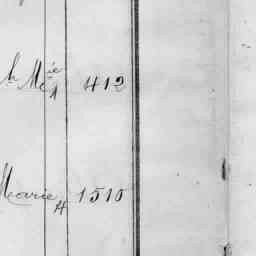 h Mie 412
Marie 1510